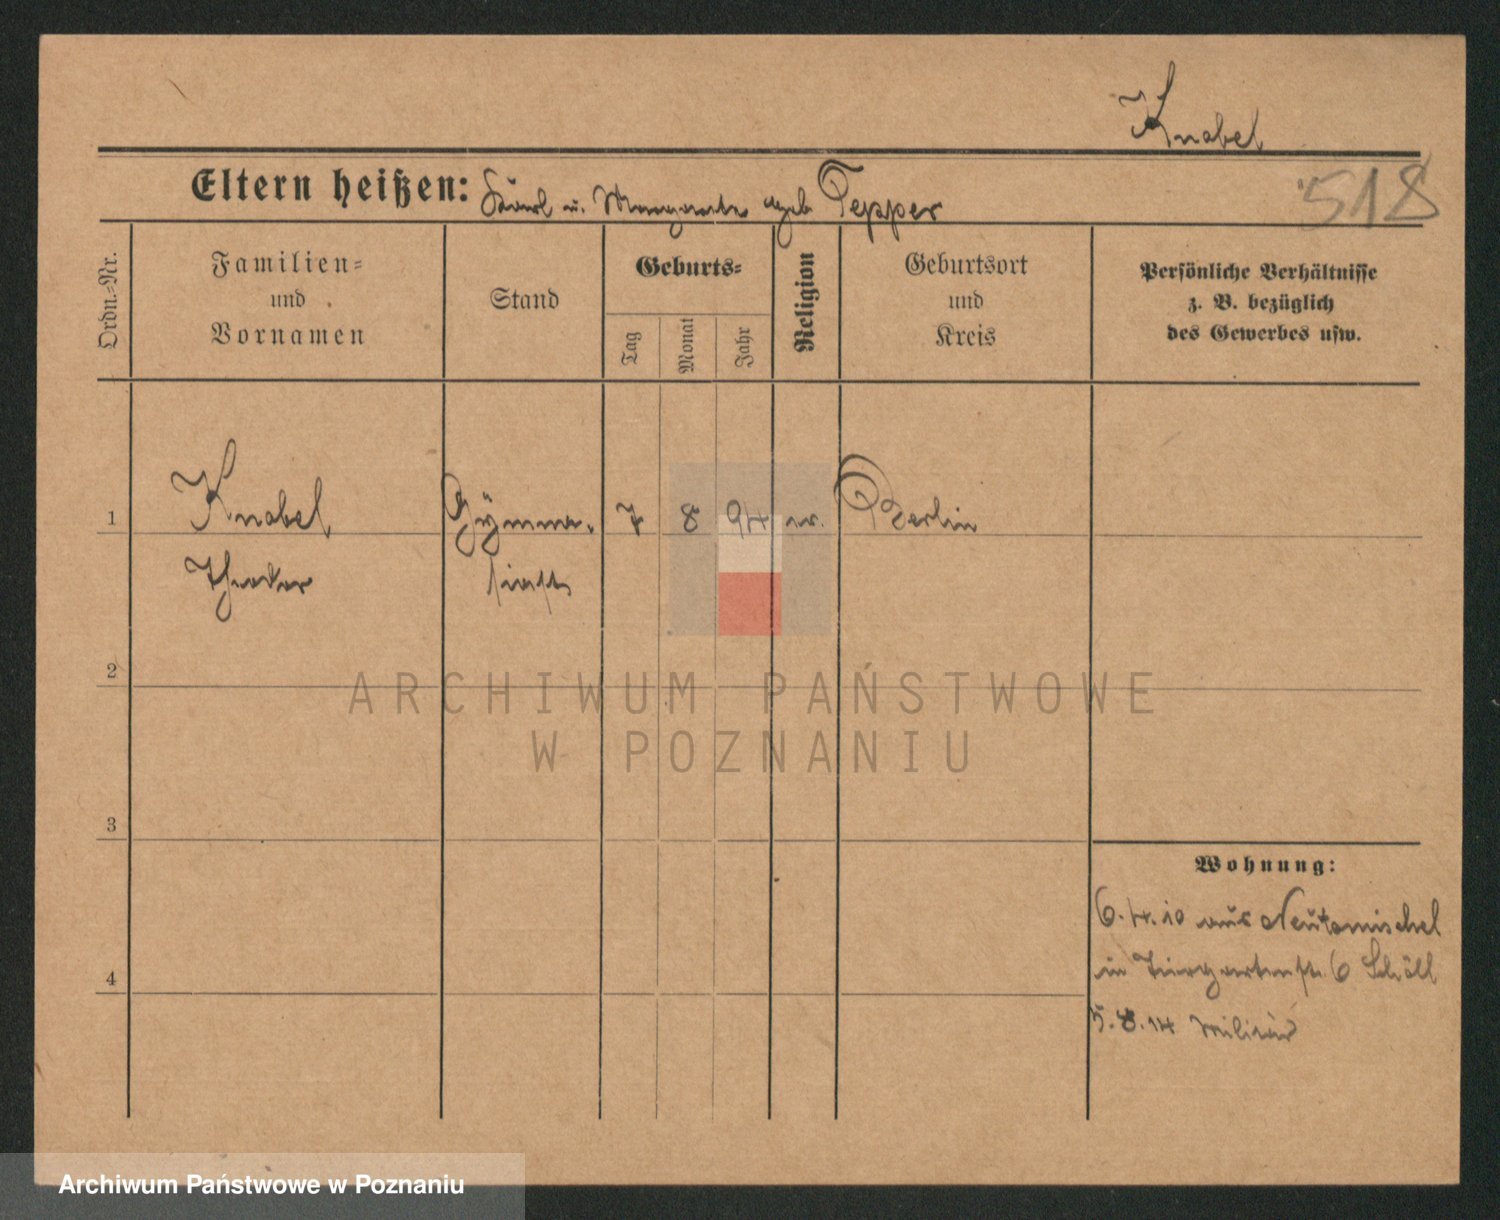 Knabel
Eltern heißen: Karl u. Margarete geb Tepper
518
Ordn.-Nr.
Familien-
und
Vornamen
Stand
Geburts-
Tag
Monat
Jahr
Religion
Geburtsort
und
Kreis
Persönliche Verhältnisse
z. B. bezüglich
des Gewerbes usw.
1
Knabel
Gymna-
7
8
94
ev.
Berlin
Theodor
siast
2
ARCHIWUM PAŃSTWOWE
W POZNANIU
3
Wohnung:
6.4.10 aus Neutomischel
in Tiergartenstr. 6 Schöll
4
5.8.14 Militär
Archiwum Państwowe w Poznaniu